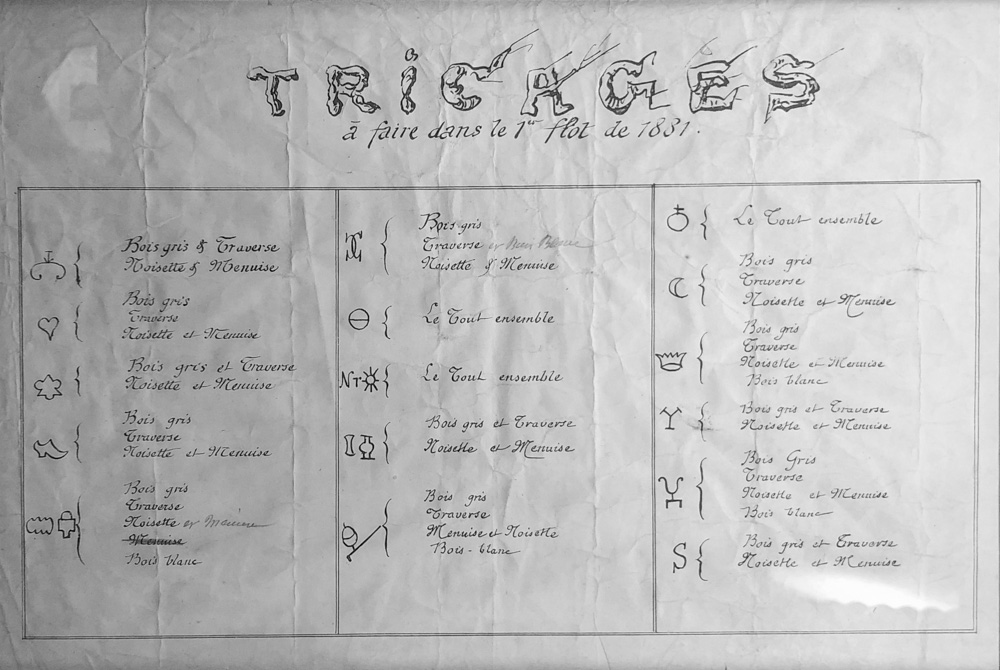 TRICAGES
à faire dans le 1er flot de 1881.
Bois gris & Traverse
Noisette & Menuise
Bois gris
Traverse
Noisette et Menuise
Bois gris et Traverse
Noisette et Menuise
Bois gris
Traverse
Noisette et Menuise
Bois gris
Traverse
Noisette et Menuise
Menuise
Bois blanc
Bois gris
Traverse et Bois Blanc
Noisette & Menuise
Le Tout ensemble
NT
Le Tout ensemble
Bois gris et Traverse
Noisette et Menuise
Bois gris
Traverse
Menuise et Noisette
Bois-blanc
Le Tout ensemble
Bois gris
Traverse
Noisette et Menuise
Bois gris
Traverse
Noisette et Menuise
Bois blanc
Y
Bois gris et Traverse
Noisette et Menuise
Bois Gris
Traverse
Noisette et Menuise
Bois blanc
S
Bois gris et Traverse
Noisette et Menuise